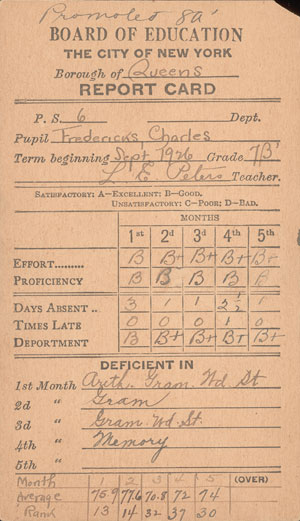 Promoted 8A'
BOARD OF EDUCATION
THE CITY OF NEW YORK
Borough of Queens
REPORT CARD
P. S. 6 Dept.
Pupil Fredericks Charles
Term beginning Sept. 1926 Grade 7B'
L. E. Peters Teacher.
SATISFACTORY: A—EXCELLENT: B—GOOD.
UNSATISFACTORY: C—POOR; D—BAD.
MONTHS
1st 2d 3d 4th 5th
EFFORT......... B B+ B+ B+ B+
PROFICIENCY B B B B B
DAYS ABSENT .. 3 1 1 2½ 1
TIMES LATE 0 0 0 1 0
DEPORTMENT B B+ B B+ B+
DEFICIENT IN
1st Month Arith. Gram. Wd St
2d " Gram
3d " Gram. Wd. St.
4th " Memory
5th "
Month 1 2 3 4 5 (OVER)
Average 75.9 77.6 70.8 72 74
Rank 13 14 32 37 30